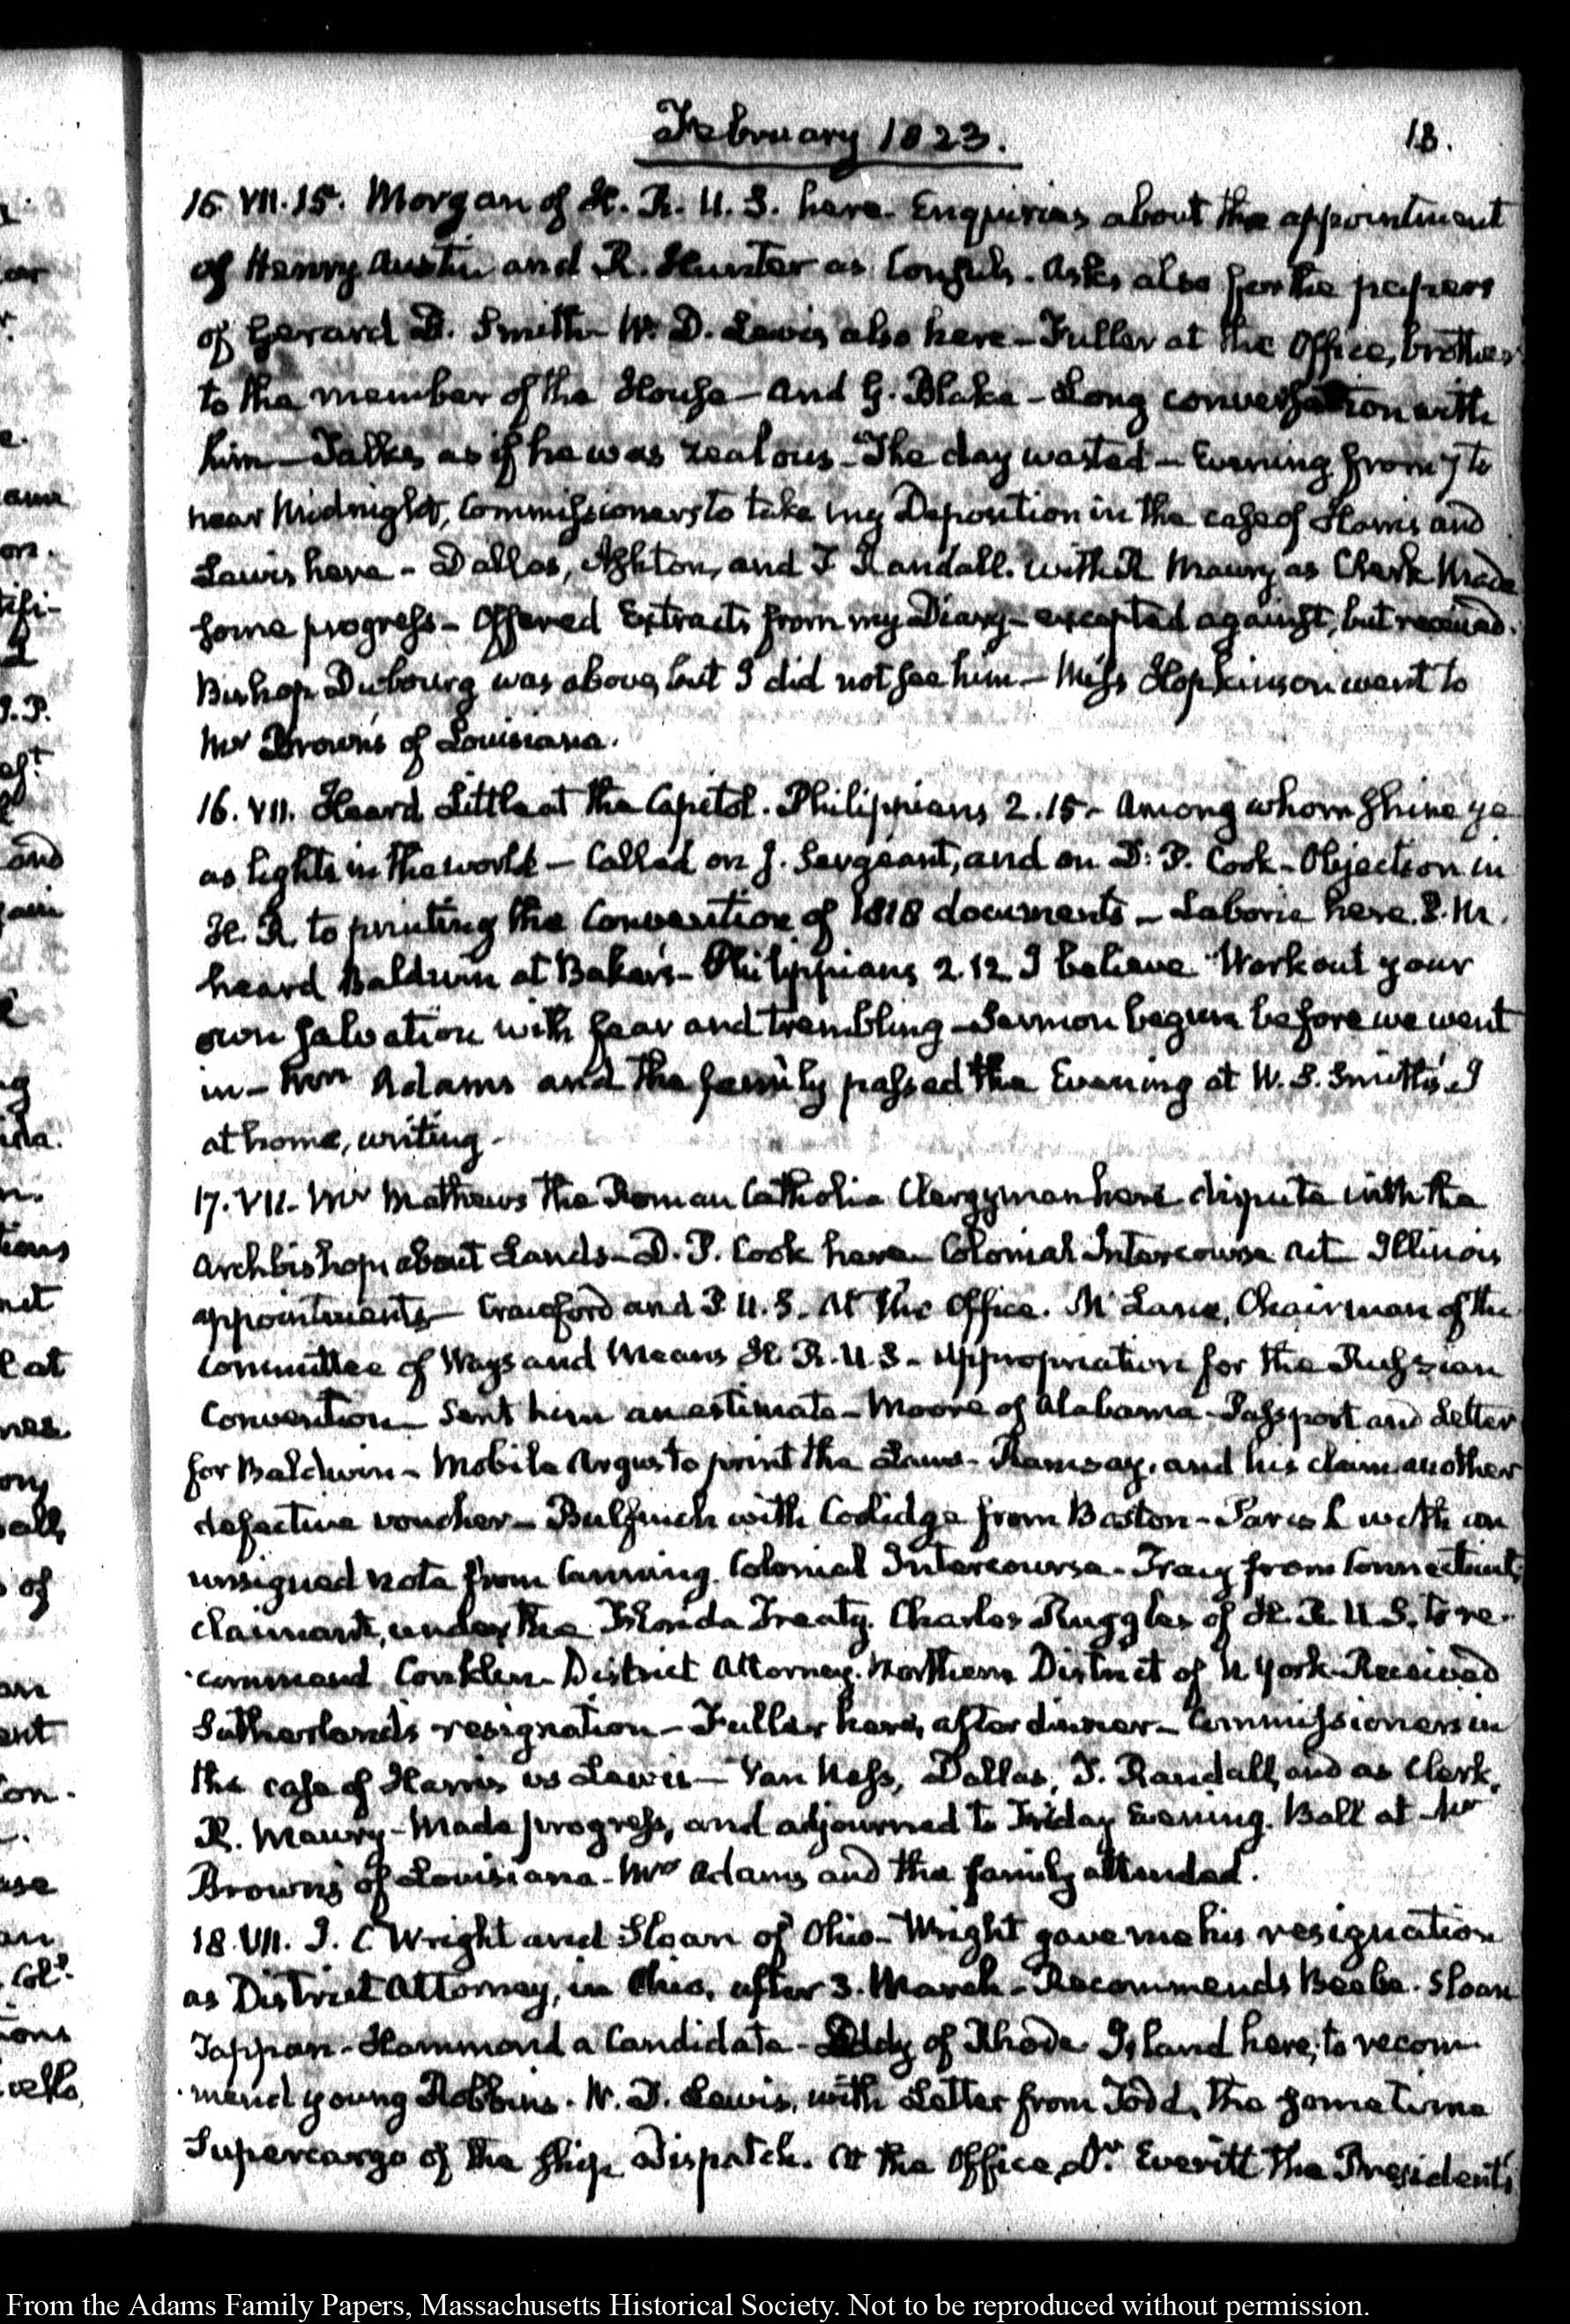 February 1823.
13.
15. VII.15. Morgan of H. R. U. S. here. Enquiries about the appointment
of Henry Austin and R. Hunter as Consuls. Asks also for the papers
of Gerard D. Smith— W. D. Lewis also here— Fuller at the Office, brother
to the member of the House— and G. Blake— Long conversation with
him— Talks as if he was zealous— The day wasted— Evening from 7 to
near Midnight, Commissioners to take my Deposition in the case of Harris and
Lewis here— Dallas, Ashton, and T Randall. with R Maury as Clerk Made
some progress— Offered Extracts from my Diary— excepted against, but received.
Bishop Dubourg was above, but I did not see him— Miss Hopkinson went to
Mr Brown's of Louisiana.
16. VII. Heard Little at the Capitol. Philippians 2.15— Among whom shine ye
as lights in the world— Called on J. Sergeant, and on D: P. Cook— Objection in
H. R. to printing the Convention of 1818 documents— Laborie here. P. M.
heard Baldwin at Baker's— Philippians 2.12 I believe Work out your
own salvation with fear and trembling— Sermon begun before we went
in— Mrs Adams and the family passed the Evening at W. S. Smith's. I
at home, writing—
17. VII— Mr Mathews the Roman Catholic Clergyman here dispute with the
Archbishop about Lands— D. P. Cook here— Colonial Intercourse Act Illinois
appointments— Crawford and P. U. S. At the Office. McLane, Chairman of the
Committee of Ways and Means H. R. U. S— Appropriation for the Russian
Convention— Sent him an estimate— Moore of Alabama— Passport and Letter
for Baldwin— Mobile Argus to print the Laws— Ramsay, and his claim another
defective voucher— Bulfinch with Coolidge from Boston— Parish with an
unsigned note from Canning. Colonial Intercourse— Tracy from Connecticut,
claimant, under the Florida Treaty. Charles Ruggles of H. R. U S. to re-
-commend Conklin— District Attorney. Northern District of N York— Received
Sutherland's resignation— Fuller here, after dinner— Commissioners in
the case of Harris vs Lewis— Van Ness, Dallas, T. Randall, and as Clerk,
R. Maury— Made progress, and adjourned to Friday Evening. Ball at Mr
Brown's of Louisiana— Mrs Adams and the family attended.
18. VII. J. C Wright and Sloan of Ohio— Wright gave me his resignation
as District Attorney, in Ohio, after 3. March— Recommends Beebe. Sloan
Tappan— Hammond a Candidate— Eddy of Rhode Island here, to recom-
-mend young Robbins. W. D. Lewis, with Letter from Todd, the sometime
Supercargo of the ship Dispatch. At the Office, Dr. Everitt the President's
From the Adams Family Papers, Massachusetts Historical Society. Not to be reproduced without permission.